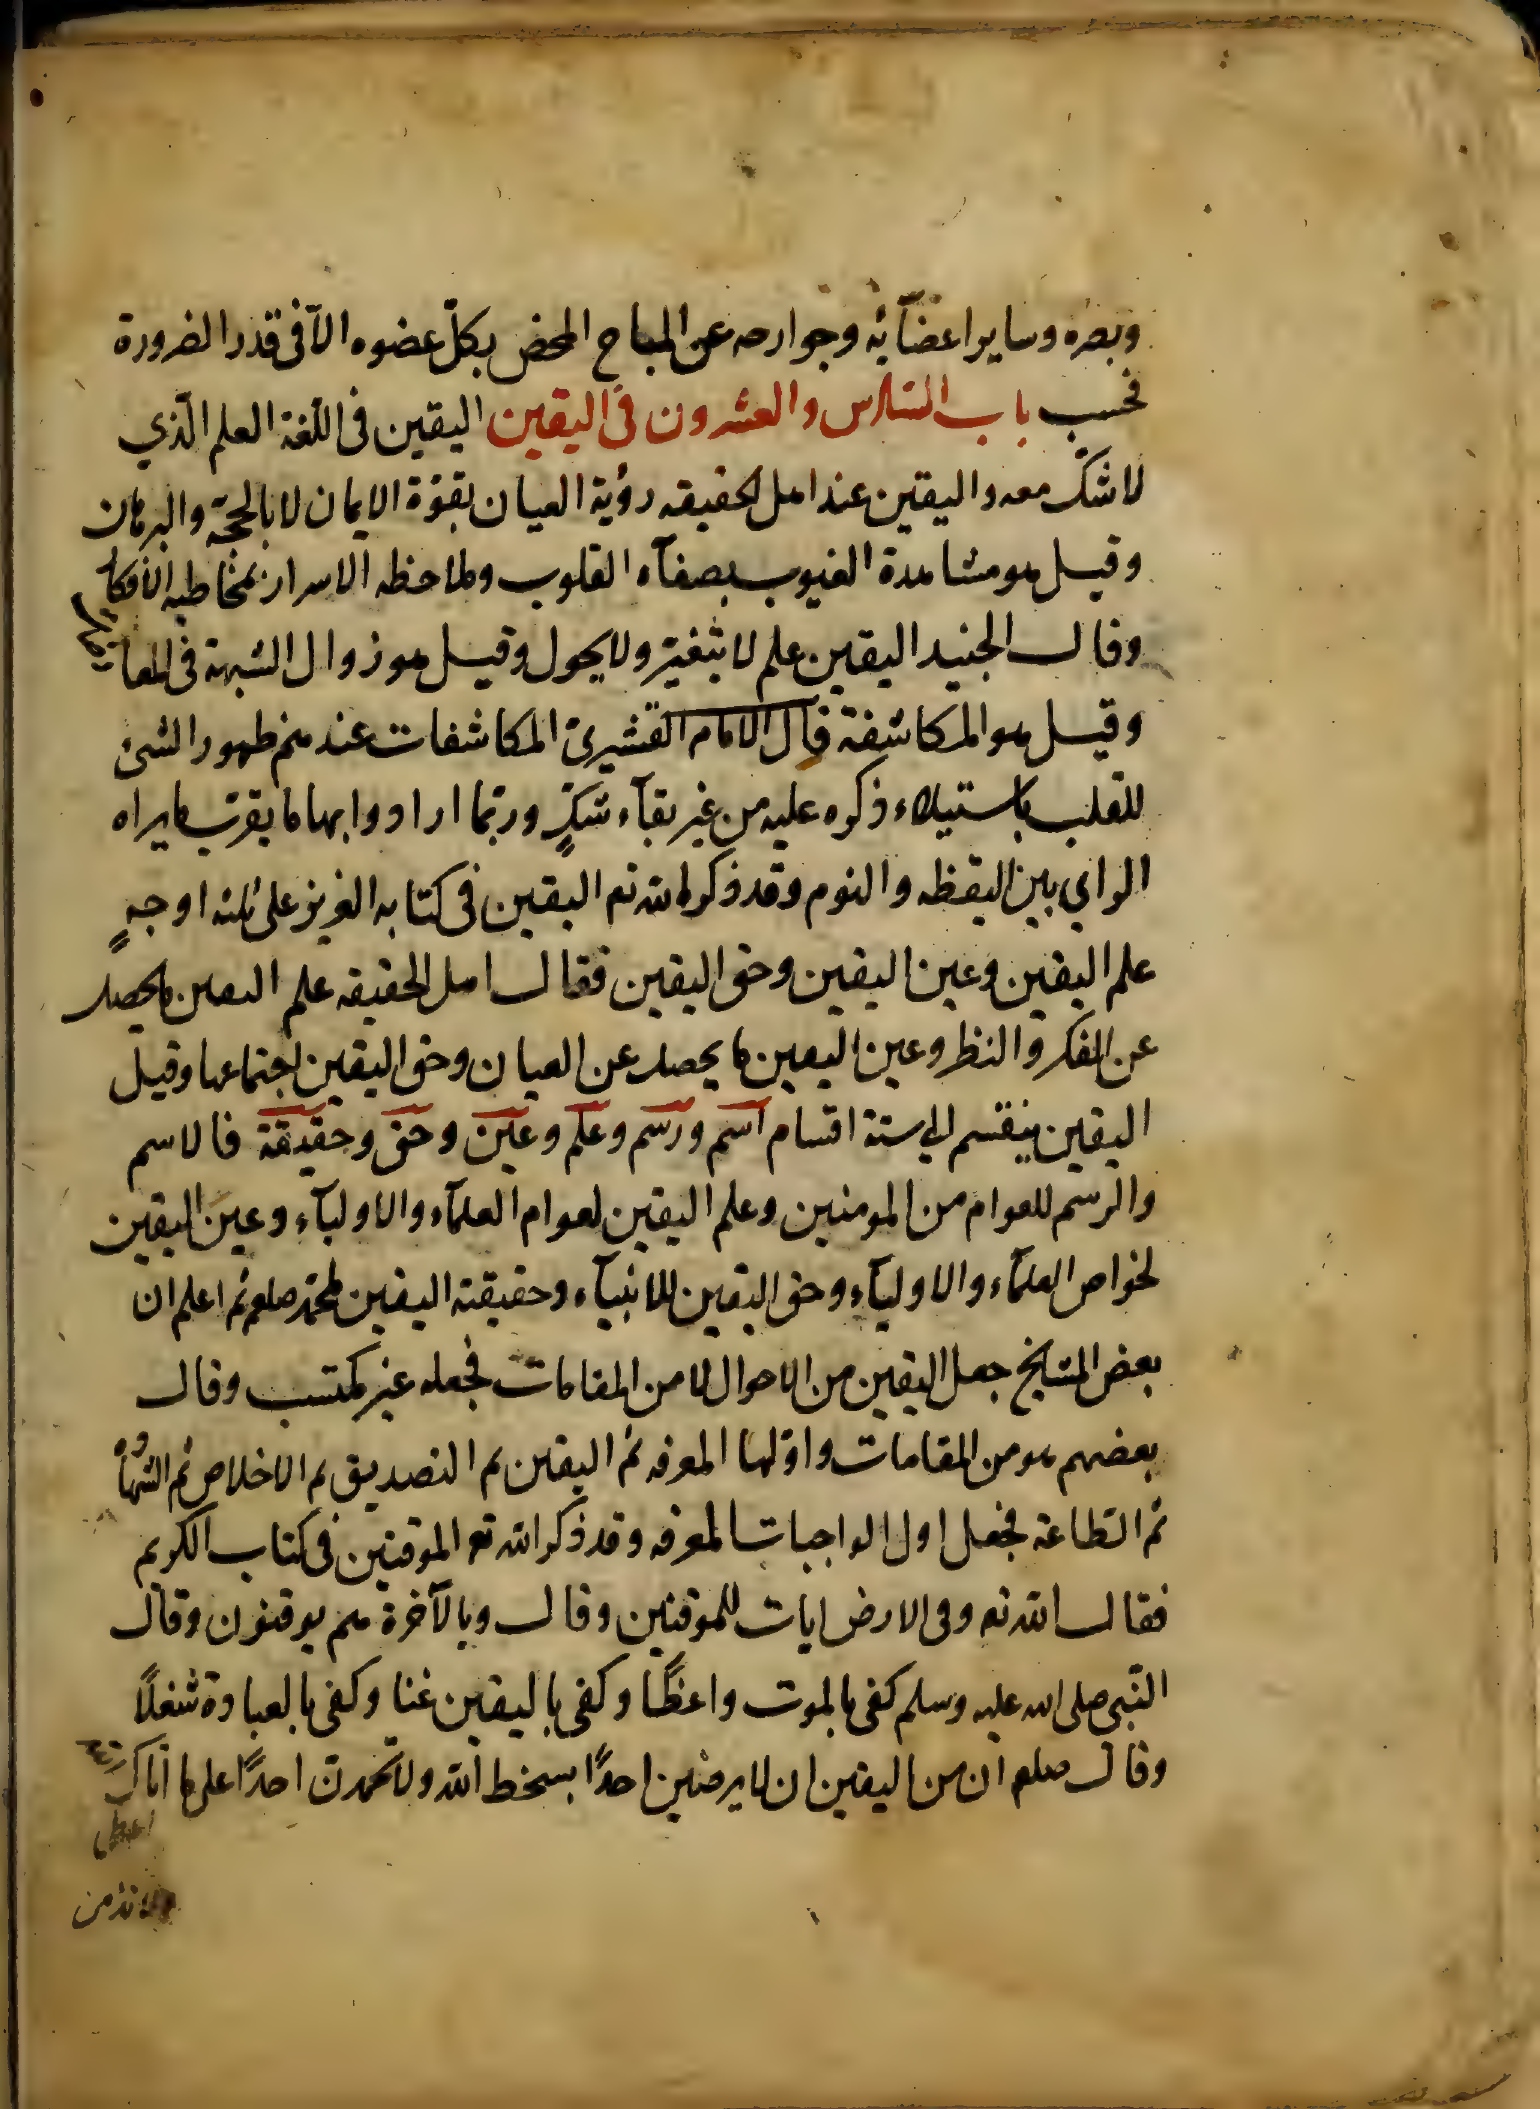 وبصره وساير اعضآئه وجوارحه عن المباح المحض بكلّ عضوه الآفى قدر الضرورة
فحسب باب السّادس والعشرون فى اليقين اليقين فى اللّغة العلم الّذي
لاشكّ معه واليقين عند اهل الحقيقه رؤية العيان بقوّة الايمان لا بالحجّة والبرهان
وقيل هو مشاهدة الغيوب بصفآء القلوب وملاحظه الاسرار بمخاطبه الافكار
وقال الجنيد اليقين علم لا يتغيّر ولا يحول وقيل هو زوال الشبهة فى المعا
وقيل هو المكاشفة قال الامام القشيرىّ المكاشفات عندهم ظهور الشئ
للقلب باستيلاء ذكره عليه من غير بقآء شكّ وربّما ارادوا بها ما يقرب ما يراه
الراي بين اليقظه والنوم وقد ذكر الله تع اليقين فى كتابه العزيز على ثلثه اوجهٍ
علم اليقين وعين اليقين وحق اليقين فقال اهل الحقيقه علم اليقين ما يحصل
عن الفكر والنظر وعين اليقين ما يحصل عن العيان وحق اليقين اجتماعها وقيل
اليقين ينقسم الى ستة اقسام اسم ورسم وعلم وعين وحق وحقيقة فالاسم
والرسم للعوام من المومنين وعلم اليقين لعوام العلمآء والاوليآء وعين اليقين
لخواص العلمآء والاوليآء وحق اليقين للانبيآء وحقيقة اليقين لمحمّد صلعم ثم اعلم ان
بعض المشايخ جعل اليقين من الاحوال لا من المقامات فجعله غير مكتسب وقال
بعضهم هو من المقامات واوّلها المعرفه ثم اليقين ثم التصديق ثم الاخلاص ثم الشهادة
ثم الطاعة فجعل اول الواجبات المعرفه وقد ذكر الله تع الموقنين فى كتاب الكريم
فقال الله تع وفى الارض ايات للموقنين وقال وبالآخرة هم يوقنون وقال
النّبى صلى الله عليه وسلم كفى بالموت واعظًا وكفى باليقين غنا وكفى بالعبادة شغلًا
وقال صلعم ان من اليقين ان لا يرضين احدًا بسخط الله ولا تحمدنّ احدًا على ما اتاك
اعطى